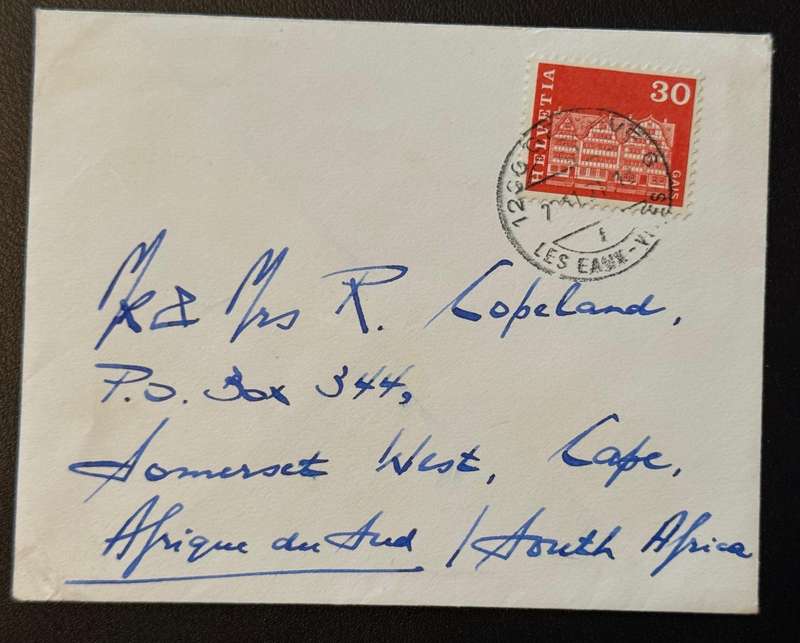 30
HELVETIA
GAIS
LES EAUX-VIVES
Mr & Mrs R. Copeland,
P.O. Box 344,
Somerset West, Cape,
Afrique du Sud / South Africa